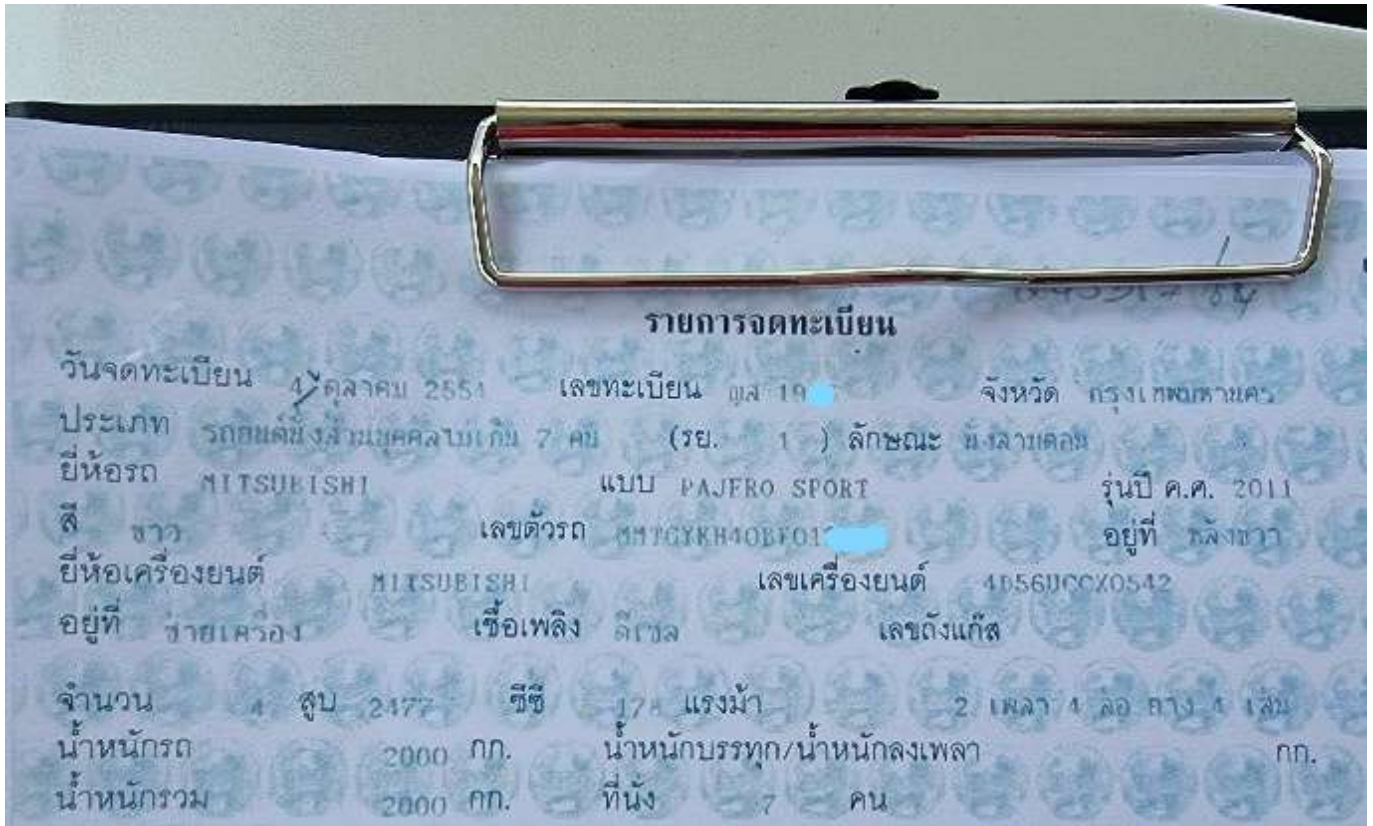 รายการจดทะเบียน
วันจดทะเบียน 4 ตุลาคม 2554 เลขทะเบียน 19 จังหวัด กรุงเทพมหานคร
ประเภท รถยนต์นั่งส่วนบุคคลไม่เกิน 7 คน (รย. 1 ) ลักษณะ นั่งสามตอน
ยี่ห้อรถ MITSUBISHI แบบ PAJERO SPORT รุ่นปี ค.ศ. 2011
สี ขาว เลขตัวรถ อยู่ที่
ยี่ห้อเครื่องยนต์ MITSUBISHI เลขเครื่องยนต์ 4D56UCCX0542
อยู่ที่ ซ้ายเครื่อง เชื้อเพลิง ดีเซล เลขถังแก๊ส
จำนวน 4 สูบ 2477 ซีซี 178 แรงม้า 2 เพลา 4 ล้อ ยาง 4 เส้น
น้ำหนักรถ 2000 กก. น้ำหนักบรรทุก/น้ำหนักลงเพลา กก.
น้ำหนักรวม 2000 กก. ที่นั่ง 7 คน